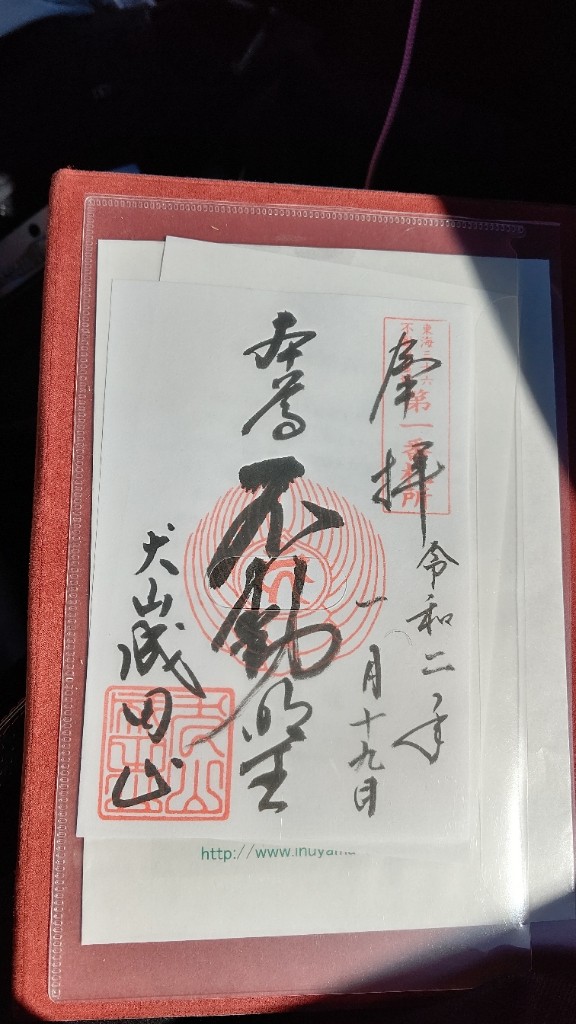 奉拝
令和二年
一月十九日
本尊
不動明王
犬山成田山
東海三十六
第一番札所
http://www.inuyama